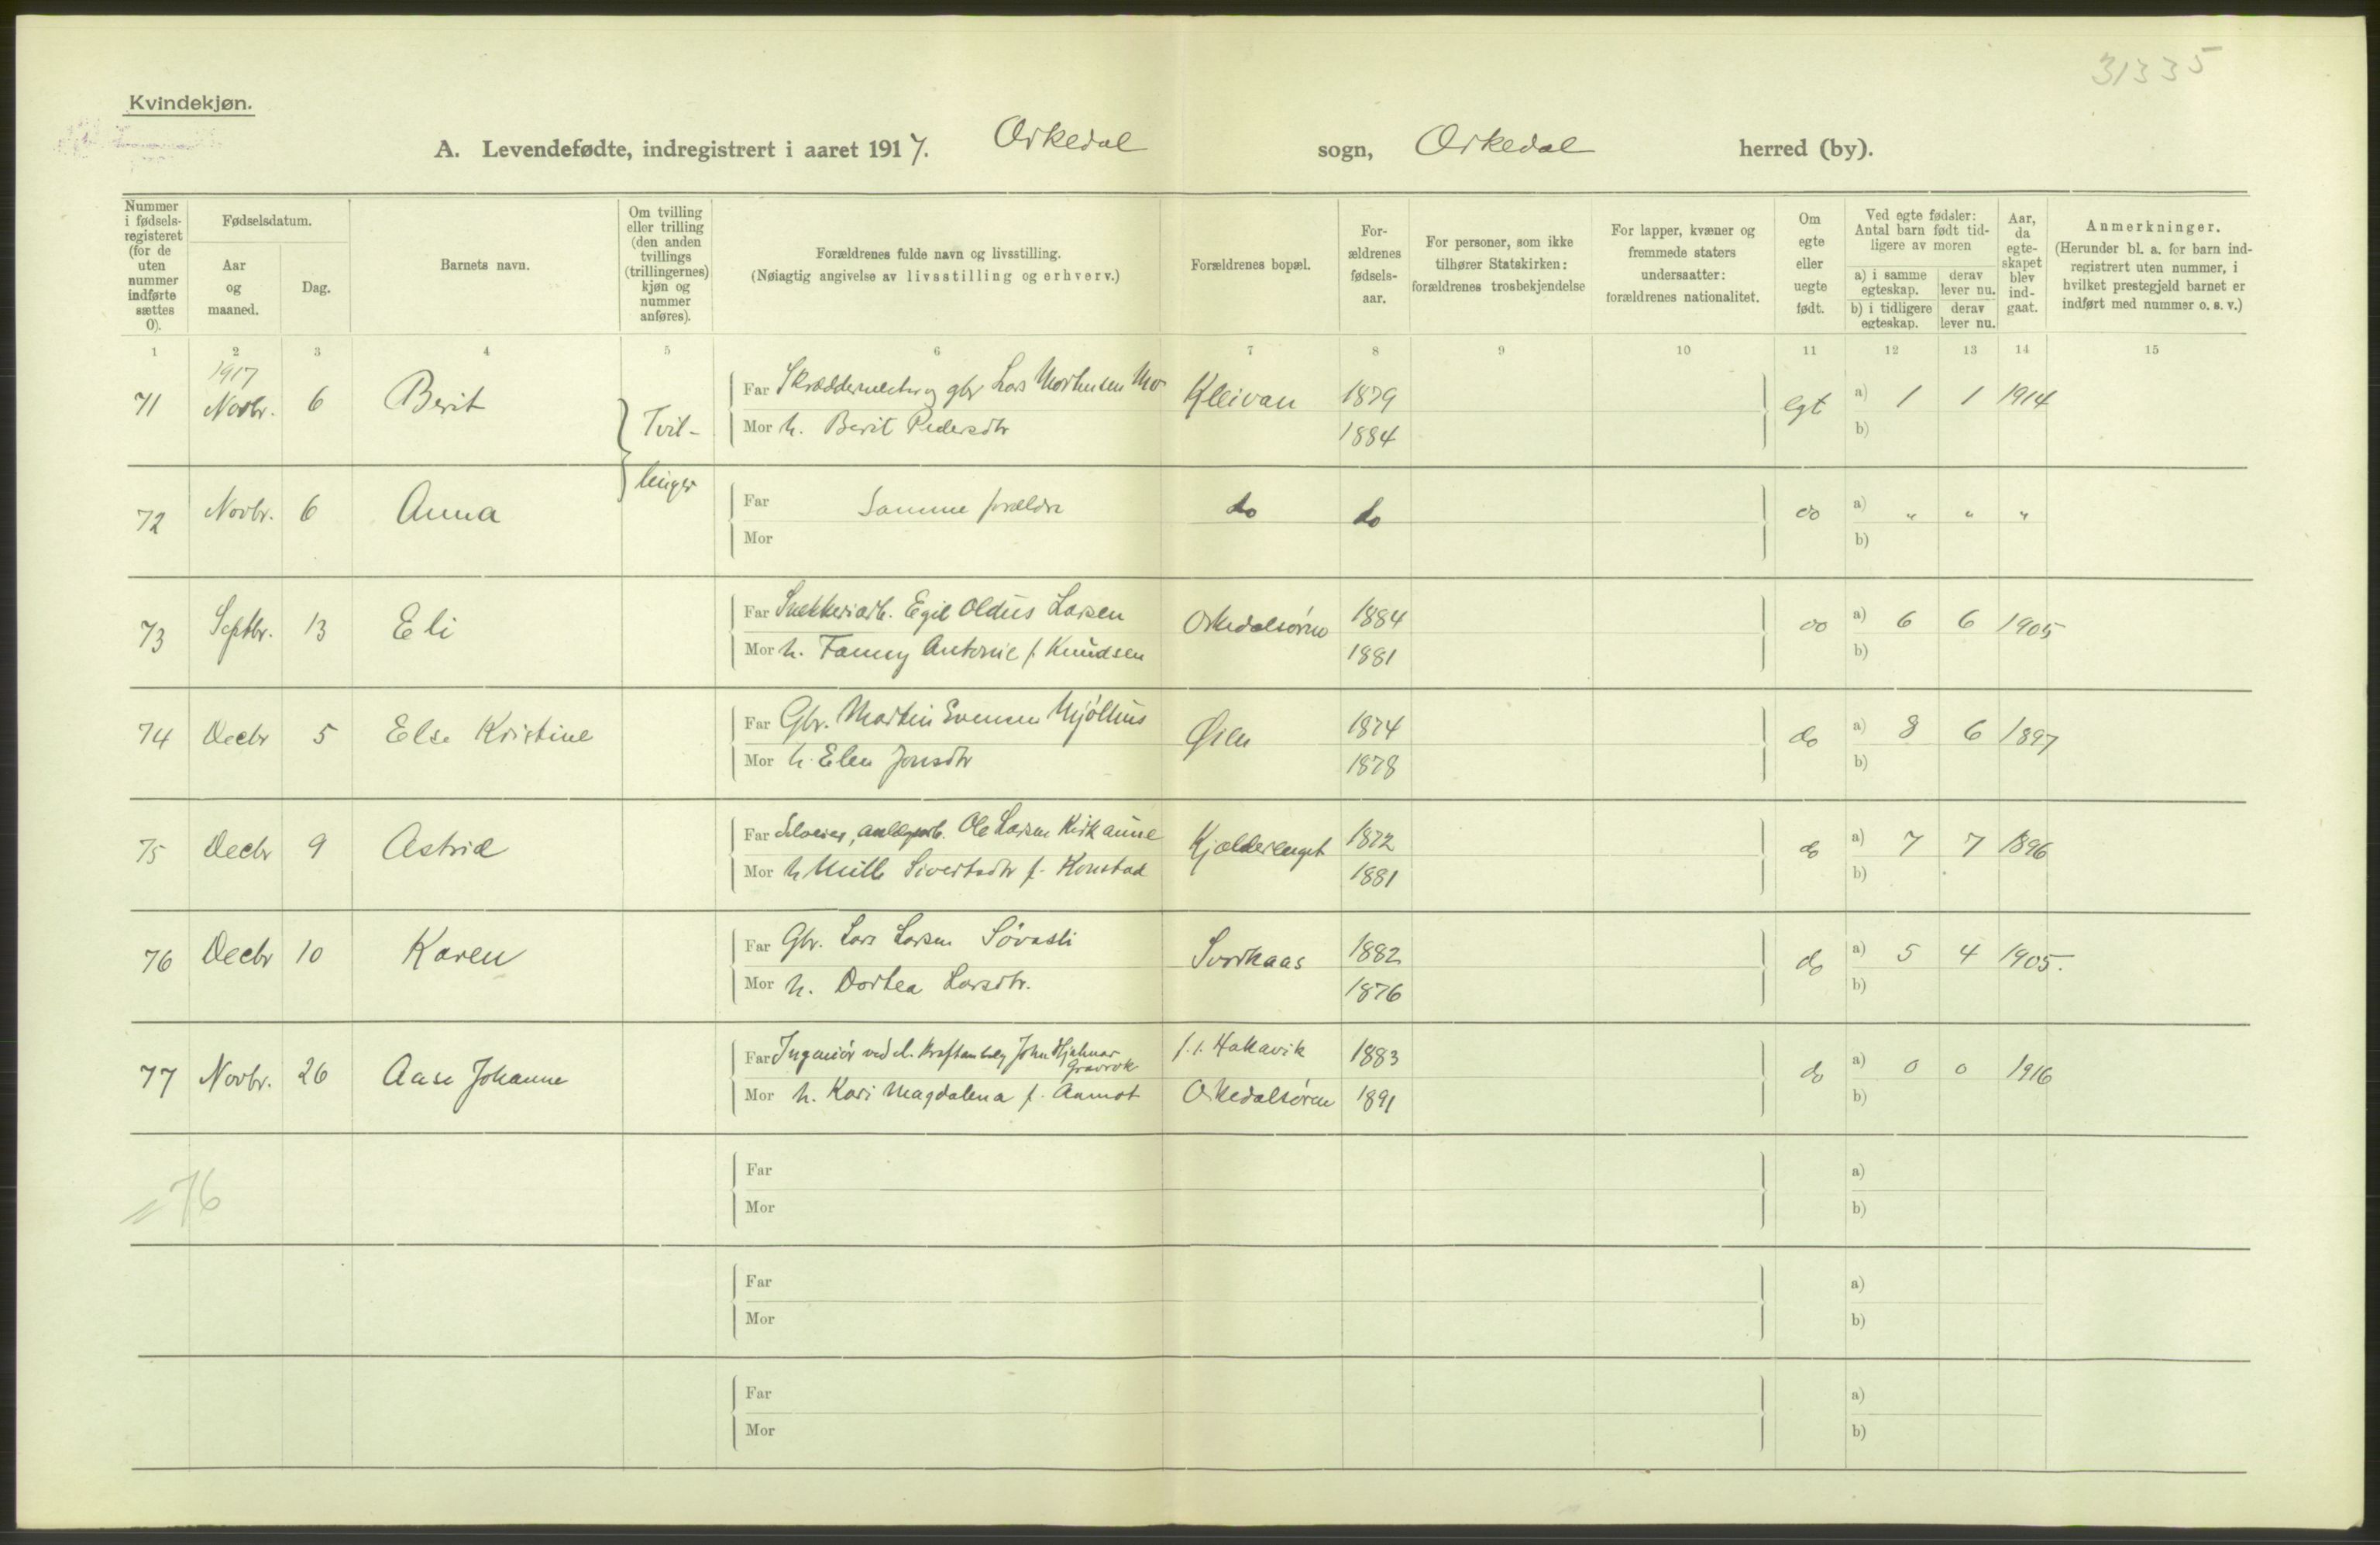 31335
Kvindekjøn.
A. Levendefødte, indregistrert i aaret 1917. Orkedal sogn, Orkedal herred (by).
Nummer i fødsels-registeret (for de uten nummer indførte sættes 0).
Fødselsdatum.
Aar og maaned.
Dag.
Barnets navn.
Om tvilling eller trilling (den anden tvillings (trillingernes) kjøn og nummer anføres).
Forældrenes fulde navn og livsstilling.
(Nøiagtig angivelse av livsstilling og erhverv.)
Forældrenes bopæl.
For-ældrenes fødsels-aar.
For personer, som ikke tilhører Statskirken: forældrenes trosbekjendelse
For lapper, kvæner og fremmede staters undersaatter: forældrenes nationalitet.
Om egte eller uegte født.
Ved egte fødsler: Antal barn født tid-ligere av moren
a) i samme egteskap.
derav lever nu.
b) i tidligere egteskap.
derav lever nu.
Aar, da egte-skapet blev ind-gaat.
Anmerkninger.
(Herunder bl. a. for barn ind-registrert uten nummer, i hvilket prestegjeld barnet er indført med nummer o. s. v.)
1 2 3 4 5 6 7 8 9 10 11 12 13 14 15
71 1917 Novbr. 6 Berit Tvil- Far Skræddermester og gbr Lars Mortensen Mo Kleivan 1879 egt a) 1 1 1914
Mor h. Berit Pedersdtr 1884 b)
linger
72 Novbr. 6 Anna Far Samme forældre do do do a) " " "
Mor b)
73 Septbr. 13 Eli Far Snekkeriarb. Egil Oldus Larsen Orkedalsøren 1884 do a) 6 6 1905
Mor h. Fanny Antonie f. Knudsen 1881 b)
74 Decbr 5 Else Kristine Far Gbr. Martin Evensen Mjølhus Øien 1874 do a) 8 6 1897
Mor h. Elen Jonsdtr 1878 b)
75 Decbr 9 Astrid Far Selveier, Ole Larsen Kirkaune Kjælderenget 1872 do a) 7 7 1896
Mor h Sivertsdtr f. Konstad 1881 b)
76 Decbr 10 Karen Far Gbr. Lars Larsen Søvasli Svorkaas 1882 do a) 5 4 1905.
Mor h. Dortea Larsdtr. 1876 b)
77 Novbr. 26 Aase Johanne Far Ingeniør ved el. kraftanlæg John Hjalmar Gravrok f. t. Hakavik 1883 do a) 0 0 1916
Mor h. Kari Magdalena f. Aamot Orkedalsøren 1891 b)
= 76
Far a)
Mor b)
Far a)
Mor b)
Far a)
Mor b)